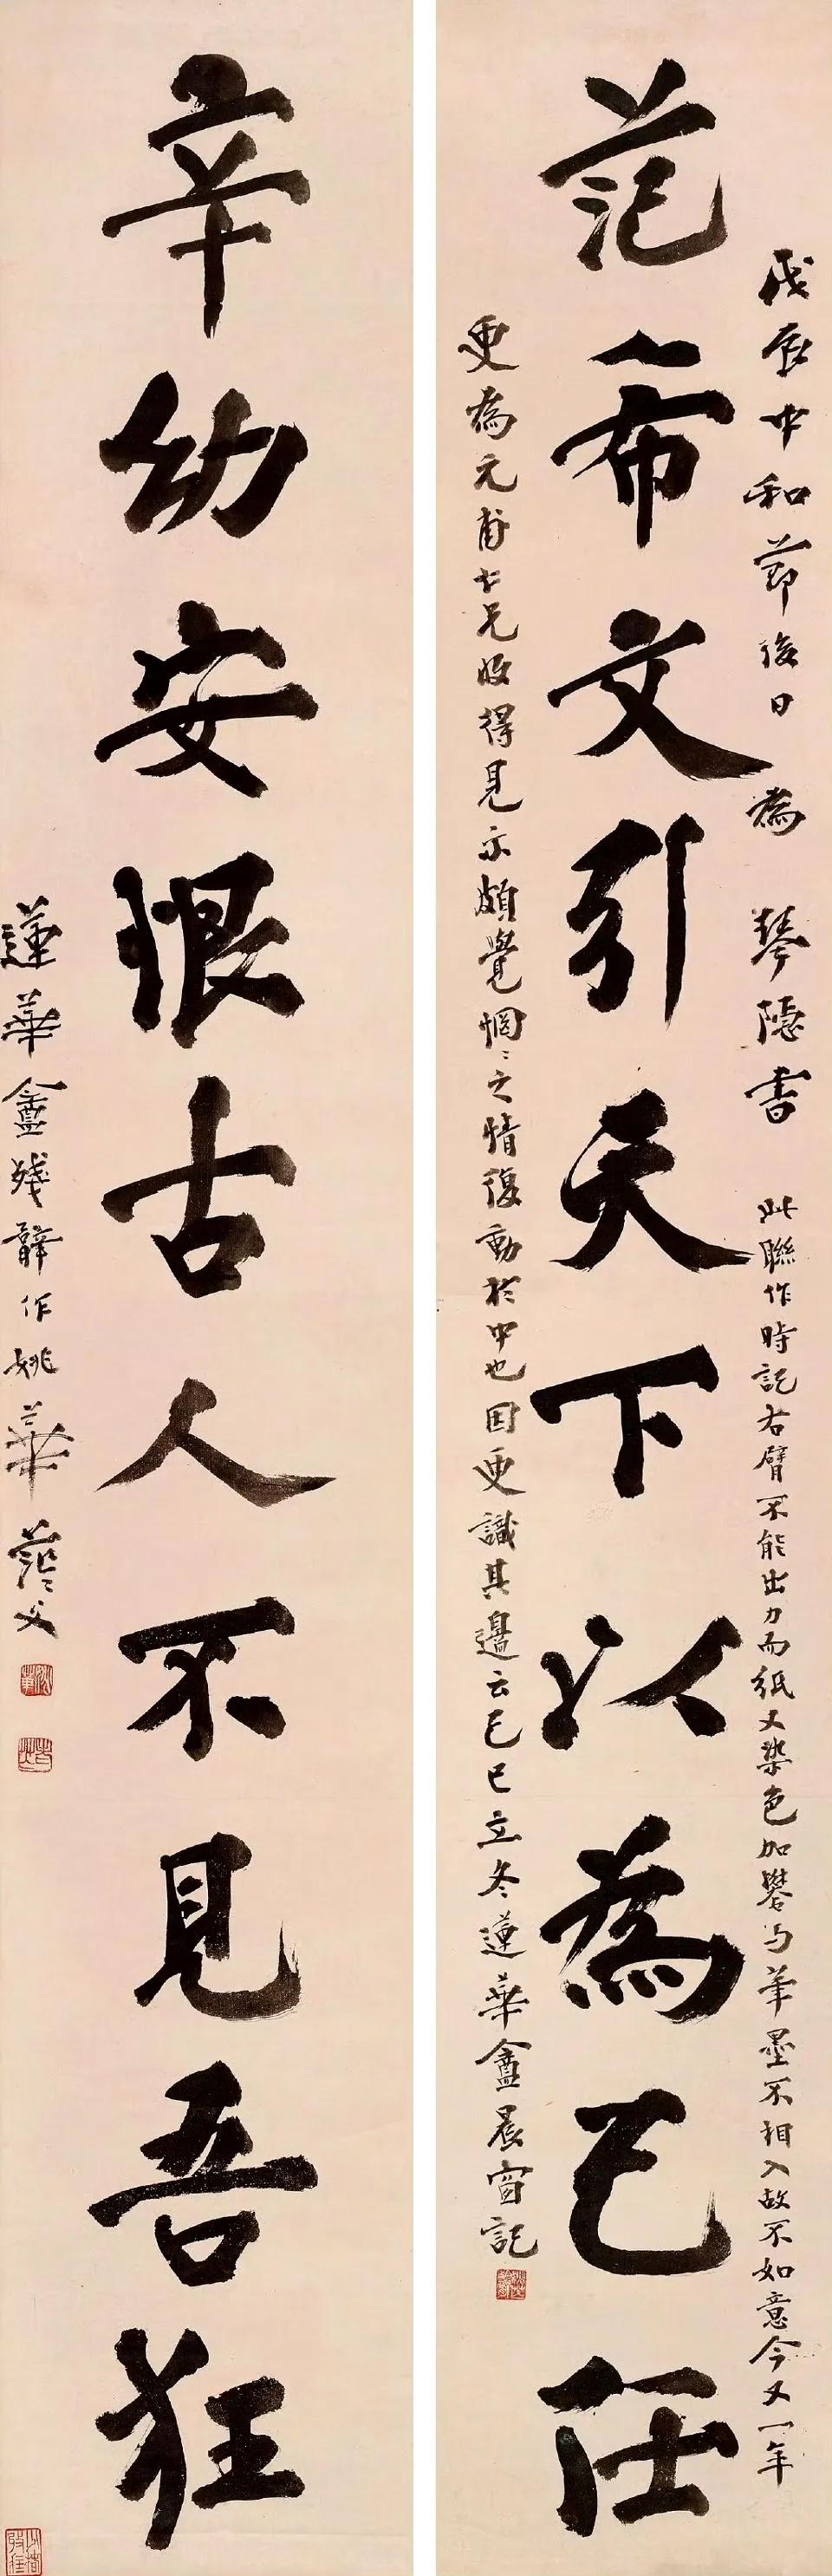 戊辰中和節後日為琴隱書此聯作時記右臂不能出力而紙又染色加礬与筆墨不相入故不如意今又一年
范希文引天下以為己任
更為元甫仁兄收得見示頗覺惘〻之情復動於中也因更識其邊云己巳立冬蓮華盦晨窗記
辛幼安恨古人不見吾狂
蓮華盦殘臂作姚華茫〻父
姚華